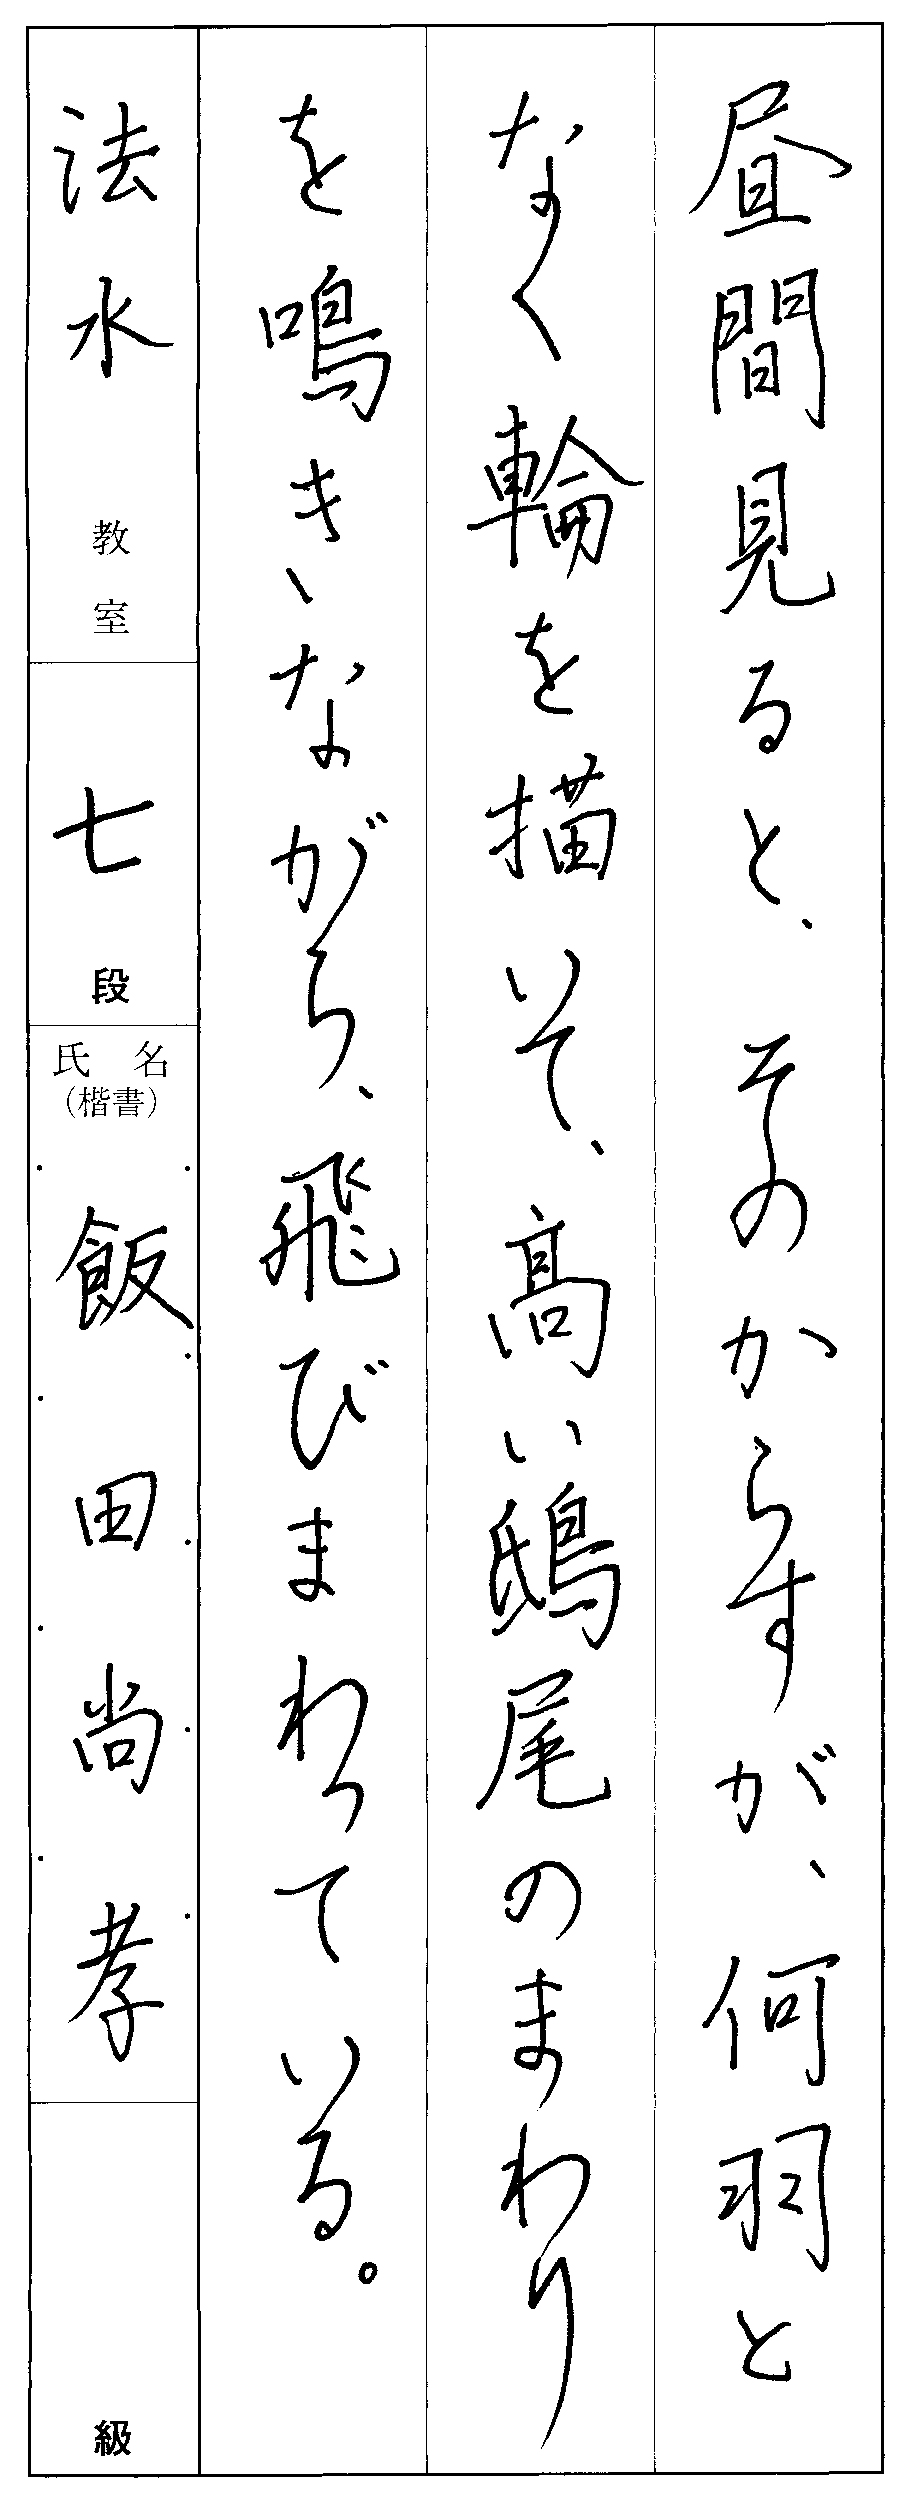 昼間見ると、そのからすが、何羽と
なく輪を描いて、高い鴟尾のまわり
を鳴きながら、飛びまわっている。
法水教室
七段
氏名
（楷書）
飯田尚孝
級